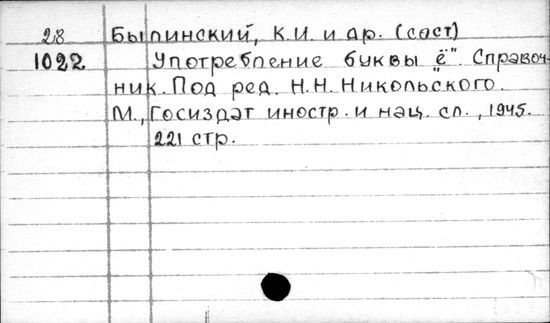 28 Былинский, К.И. и др. (сост)
1022 Употребление буквы „ё". Справоч-
ник. Под ред. Н.Н. Никольского.
М., Госиздат иностр. и нац. сл., 1945.
221 стр.